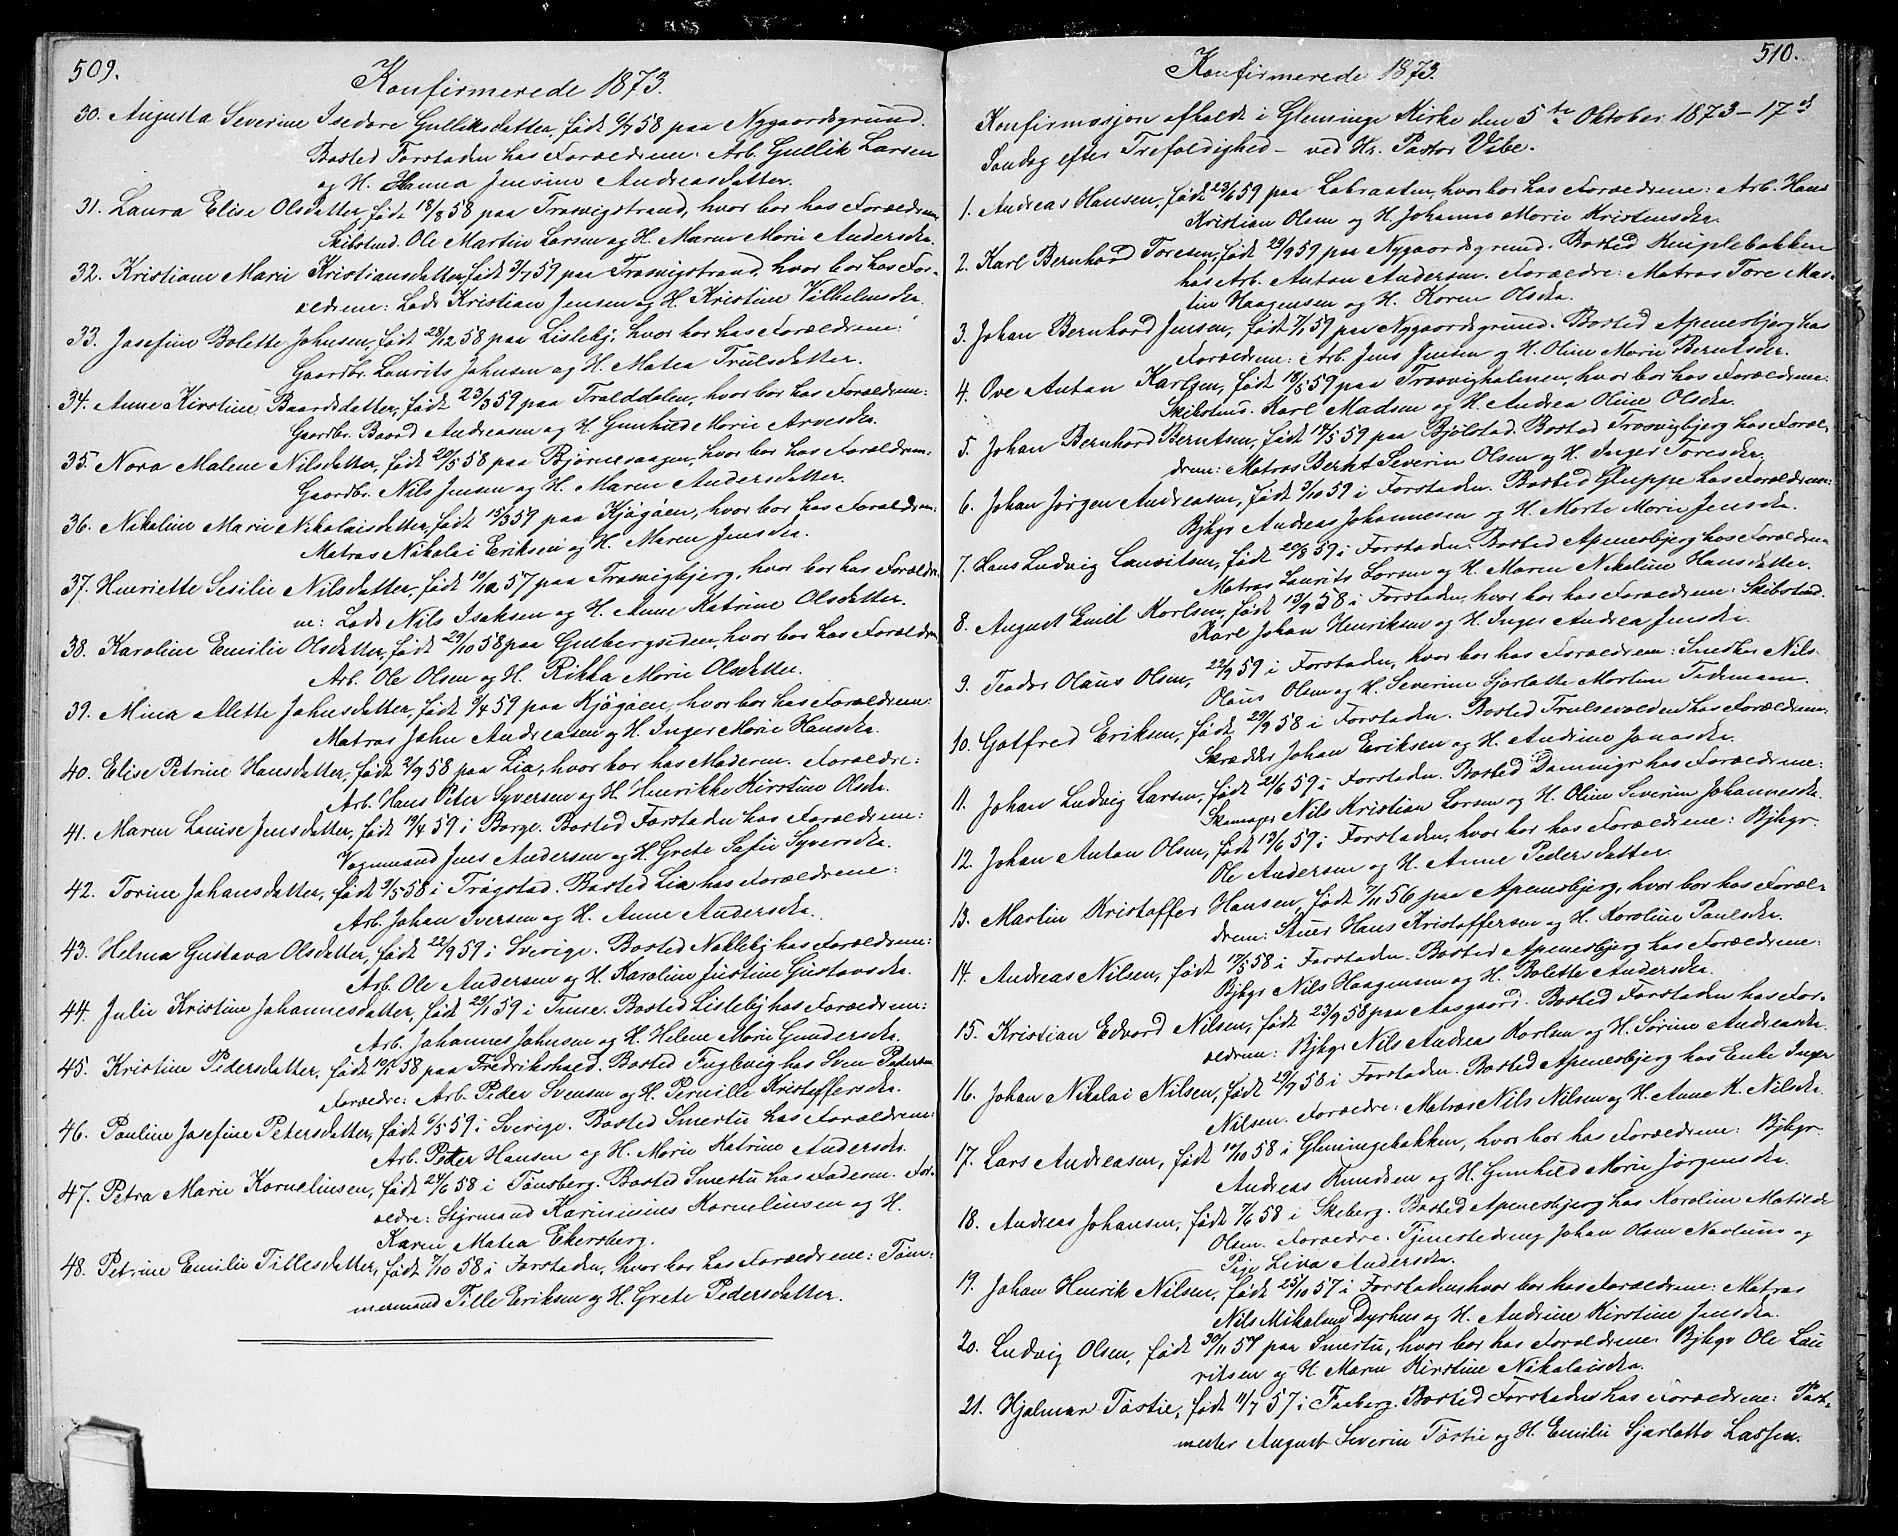 509.
Konfirmerede 1873.
30. Augusta Severine Isedore Gulliksdatter, født 6/7 58 paa Nygaardsgrund.
Bosted Forstaden hos Forældrene: Arb. Gullik Larsen
og H. Hanna Jensine Andreasdatter.
31. Laura Elise Olsdatter, født 18/8 58 paa Trosvigstrand, hvor bor hos Forældrene
Skibstmd. Ole Martin Larsen og H. Maren Marie Andersdtr.
32. Kristiane Marie Kristiansdatter, født 3/7 59 paa Trosvigstrand, hvor bor hos For-
ældrene: Lods Kristian Jensen og H. Kristine Vilhelmsdtr.
33. Josefine Bolette Johnsen, født 28/12 58 paa Lisleby, hvor bor hos Forældrene:
Gaardbr. Laurits Johnsen og H. Matea Trulsdatter.
34. Anne Kirstine Baardsdatter, født 23/3 59 paa Tralddalen, hvor bor hos Forældrene:
Gaardbr. Baard Andreasen og H. Gunhild Marie Arvesdtr.
35. Nora Malene Nilsdatter, født 29/5 58 paa Bjørneraagen, hvor bor hos Forældrene:
Gaardbr. Nils Jensen og H. Maren Andersdatter.
36. Nikoline Marie Nikolaisdatter, født 15/3 59 paa Kjøgøen, hvor bor hos Forældrene:
Matros Nikolai Eriksen og H. Maren Jensdtr.
37. Henriette Sesilie Nilsdatter, født 10/12 57 paa Trosvigbjerg, hvor bor hos Forældre-
ne: Lods Nils Isaksen og H. Anne Katrine Olsdatter.
38. Karoline Emilie Olsdatter, født 29/10 58 paa Gulbergseden, hvor bor hos Forældrene
Arb. Ole Olsen og H. Rikka Marie Olsdatter.
39. Mina Alette Johnsdatter, født 9/4 59 paa Kjøgøen, hvor bor hos Forældrene:
Matros John Andreasen og H. Inger Marie Hansdtr.
40. Elise Petrine Hansdatter, født 2/9 58 paa Lia, hvor bor hos Moderen. Forældre:
Arb. Hans Peter Syversen og H. Henrikke Kirstine Olsdtr.
41. Maren Louise Jensdatter, født 19/4 59 i Borge. Bosted Forstaden hos Forældrene:
Vognmand Jens Andersen og H. Grete Sofie Syversdtr.
42. Torine Johansdatter, født 9/5 58 i Trøgstad. Bosted Lia hos Forældrene:
Arb. Johan Iversen og H. Anne Andersdtr.
43. Helma Gustava Olsdatter, født 22/9 59 i Sverige. Bosted Nokleby hos Forældrene:
Arb. Ole Andersen og H. Karoline Justine Gustavsdtr.
44. Julie Kristine Johannesdatter, født 29/1 59 i Tune. Bosted Lisleby hos Forældrene:
Arb. Johannes Johnsen og H. Helene Marie Gundersdtr.
45. Kristine Pedersdatter, født 19/1 58 paa Fredrikshald. Bosted Fuglevig hos Sven Pedersen
Forældre: Arb. Peder Svensen og H. Pernille Kristoffersdtr.
46. Pauline Josefine Petersdatter, født 6/5 59 i Sverige. Bosted Smertu hos Forældrene:
Arb. Peter Hansen og H. Marie Katrine Andersdtr.
47. Petra Marie Kornelinsen, født 24/6 58 i Tønsberg. Bosted Smertu hos Faderen. For-
ældre: Styrmand Karinisius Kornelinsen og H.
Karen Matea Ekersberg.
48. Petrine Emilie Tillesdatter, født 7/10 58 i Forstaden, hvor bor hos Forældrene: Tøm-
mermand Tille Eriksen og H. Grete Pedersdatter.
510.
Konfirmerede 1873.
Konfirmasjon afholdt i Glemminge Kirke den 5te Oktober 1873 - 17de
Søndag efter Trefoldighed - ved Hr. Pastor Vibe.
1. Andreas Hansen, født 23/6 59 paa Labraaten, hvor bor hos Forældrene: Arb. Hans
Kristian Olsen og H. Johanne Marie Kristensdtr.
2. Karl Bernhard Toresen, født 29/9 59 paa Nygaardsgrund. Bosted Kniplebakken
hos Arb. Anton Andersen. Forældre: Matros Tore Mar-
tin Haagensen og H. Karen Olsdtr.
3. Johan Bernhard Jensen, født 7/1 59 paa Nygaardsgrund. Bosted Apenesbjerg hos
Forældrene: Arb. Jens Jensen og H. Oline Marie Berntsdtr.
4. Ove Anton Karlsen, født 18/5 59 paa Trosvigholmen, hvor bor hos Forældrene:
Skibstmd. Karl Madsen og H. Andrea Oline Olsdtr.
5. Johan Bernhard Berntsen, født 14/5 59 paa Bjølstad. Bosted Trosvigbjerg hos Foræl-
drene: Matros Bernt Severin Olsen og H. Inger Toresdtr.
6. Johan Jørgen Andreasen, født 3/10 59 i Forstaden. Bosted Gluppe hos Forældrene:
Bjhgr Andreas Johannesen og H. Marte Marie Jensdtr.
7. Hans Ludvig Lauritsen, født 20/8 59 i Forstaden. Bosted Apenesbjerg hos Forældrene
Matros Laurits Larsen og H. Maren Nikoline Hansdatter.
8. August Emil Karlsen, født 13/9 58 i Forstaden, hvor bor hos Forældrene: Skibstmd.
Karl Johan Henriksen og H. Inger Andrea Jensdtr.
9. Teodor Olaus Olsen, 22/9 59 i Forstaden, hvor bor hos Forældrene: Snedker Nils
Olaus Olsen og H. Severine Sjarlotte Mortine Tidemann.
10. Gotfred Eriksen, født 29/9 58 i Forstaden. Bosted Trulsevolden hos Forældrene:
Skrædder Johan Eriksen og H. Andrine Jonasdtr.
11. Johan Ludvig Larsen, født 21/6 59 i Forstaden. Bosted Damnigr hos Forældrene:
Skomager Nils Kristian Larsen og H. Oline Severine Johannesdtr.
12. Johan Anton Olsen, født 13/6 59 i Forstaden, hvor bor hos Forældrene: Bjhgr.
Ole Andersen og H. Anne Pedersdatter.
13. Martin Kristoffer Hansen, født 7/11 56 paa Apenesbjerg, hvor bor hos Foræl-
drene: Stuer Hans Kristoffersen og H. Karoline Paulsdtr.
14. Andreas Nilsen, født 17/5 58 i Forstaden. Bosted Apenesbjerg hos Forældrene:
Bjhgr Nils Haagensen og H. Bolette Andersdtr.
15. Kristian Edvard Nilsen, født 23/9 58 paa Aasgaard. Bosted Forstaden hos For-
ældrene: Bjhgr Nils Andreas Karlsen og H. Sørine Andreasdtr.
16. Johan Nikolai Nilsen, født 29/7 58 i Forstaden. Bosted Apenesbjerg hos Enke Inger
Nilsen. Forældre: Matros Nils Nilsen og H. Anne K. Nilsdtr.
17. Lars Andreasen, født 17/10 58 i Glemmingebakken, hvor bor hos Forældrene: Bjhgr
Andreas Knudsen og H. Gunhild Marie Jørgensdtr.
18. Andreas Johansen, født 7/6 58 i Skeberg. Bosted Apenesbjerg hos Karoline Matilde
Olsen. Forældre: Tjenestedreng Johan Olsen Navlund og
Pige Liva Andersdtr.
19. Johan Henrik Nilsen, født 25/10 57 i Forstaden, hvor bor hos Forældrene: Matros
Nils Mikalsen Dyrhus og H. Andrine Kirstine Jensdtr.
20. Ludvig Olsen, født 30/11 57 paa Smertu, hvor bor hos Forældrene: Bjhgr Ole Lau
ritsen og H. Maren Kirstine Nikolaisdtr.
21. Hjalmar Tøstie, født 11/7 57 i Faaberg. Bosted Forstaden hos Forældrene: Post-
mester August Severin Tøstie og H. Emilie Sjarlotte Lassen.